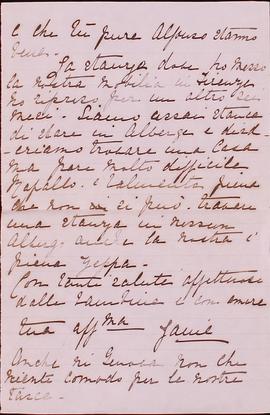 e che tu pure Alfonso stanno
bene.
La stanza dove ho messo
la nostra mobilia in Firenze
ho ripreso per un altro sei
mesi. Siamo assai stanca
di stare in Albergo e desid-
-eriamo trovare una Casa
ma pare molto difficile
Rapallo. è talmente piena
che non si può trovare
una stanza in nessun
Albergo anche la nostra è
piena zeppa.
Con tanti saluti affettuosi
dalle bambine e con amore
tua aff ma
Anche in Genova non che
niente comodo per le nostre
tasce.